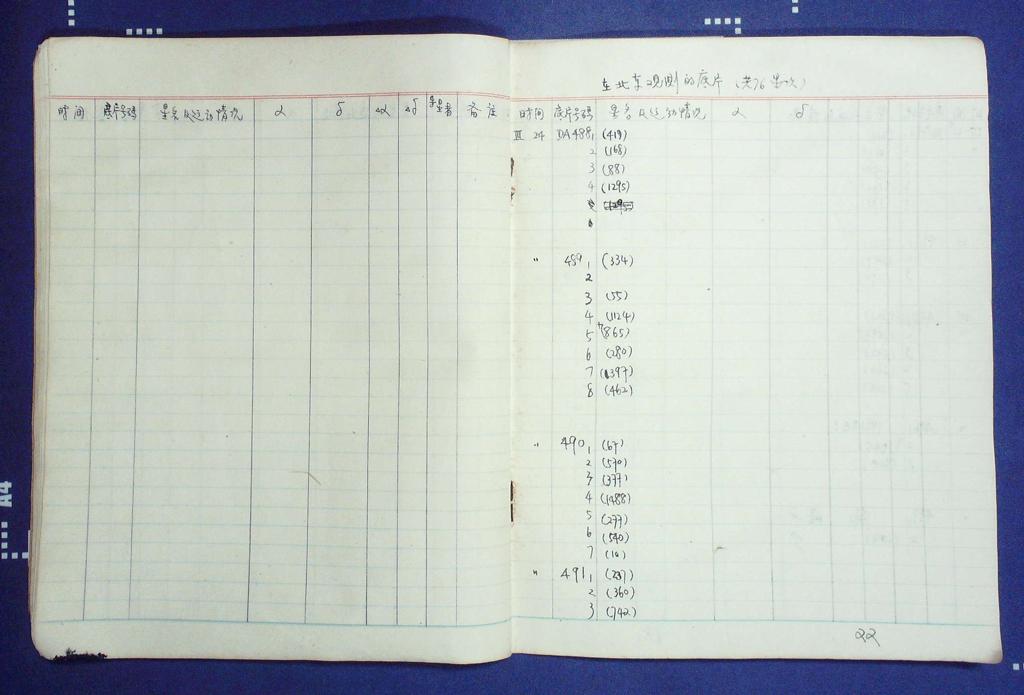 时间 底片号码 星名及运动情况 α δ Δα Δδ 备注
在北京观测的底片 (共76星次)
时间 底片号码 星名及运动情况 α δ
Ⅲ 24 DA488, 1 (419)
2 (168)
3 (88)
4 (1295)
" 489, 1 (334)
2
3 (55)
4 (1124)
5 (865)
6 (280)
7 (1397)
8 (462)
" 490, 1 (67)
2 (570)
3 (377)
4 (1488)
5 (277)
6 (540)
7 (10)
" 491, 1 (297)
2 (360)
3 (742)
22
A4